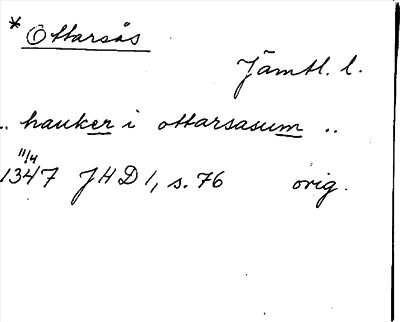 * Ottarsås
Jämtl. l.
.. hauker i ottarsasum ..
11/4
1347 JHD 1, s. 76 orig.